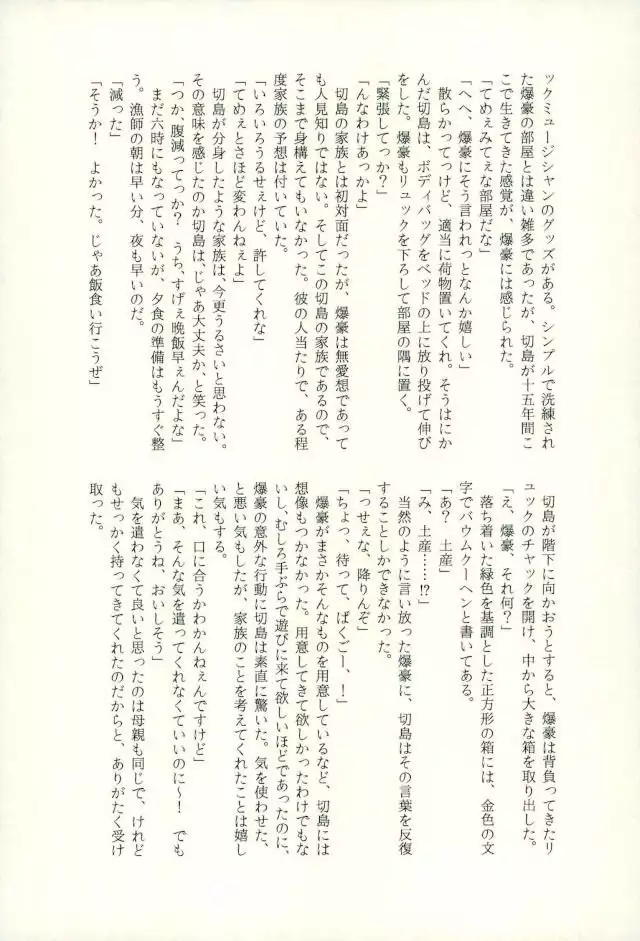 ックミュージシャンのグッズがある。シンプルで洗練され
た爆豪の部屋とは違い雑多であったが、切島が十五年間こ
こで生きてきた感覚が、爆豪には感じられた。
「てめぇみてぇな部屋だな」
「へへ、爆豪にそう言われっとなんか嬉しい」
散らかってつけど、適当に荷物置いてくれ。そうはにか
んだ切島は、ボディバッグをベッドの上に放り投げて伸び
をした。爆豪もリュックを下ろして部屋の隅に置く。
「緊張してっか?」
「んなわけあっかよ」
切島の家族とは初対面だったが、爆豪は無愛想であって
も人見知りではない。そしてこの切島の家族であるので、
そこまで身構えてもいなかった。彼の人当たりで、ある程
度家族の予想は付いていた。
「いろいろうるせぇけど、許してくれな」
「てめぇとさほど変わんねぇよ」
切島が分身したような家族は、今更うるさいと思わない。
その意味を感じたのか切島は、じゃあ大丈夫か、と笑った。
「つか、腹減ってっか? うち、すげぇ晩飯早ぇんだよな」
まだ六時にもなっていないが、夕食の準備はもうすぐ整
う。漁師の朝は早い分、夜も早いのだ。
「減った」
「そうか! よかった。じゃあ飯食い行こうぜ」
切島が階下に向かおうとすると、爆豪は背負ってきたリ
ュックのチャックを開け、中から大きな箱を取り出した。
「え、爆豪、それ何?」
落ち着いた緑色を基調とした正方形の箱には、金色の文
字でバウムクーヘンと書いてある。
「あ? 土産」
「み、土産……!?」
当然のように言い放った爆豪に、切島はその言葉を反復
することしかできなかった。
「っせぇな、降りんぞ」
「ちょっ、待って、ばくごー、!」
爆豪がまさかそんなものを用意しているなど、切島には
想像もつかなかった。用意してきて欲しかったわけでもな
いし、むしろ手ぶらで遊びに来て欲しいほどであったのに、
爆豪の意外な行動に切島は素直に驚いた。気を使わせた、
と悪い気もしたが、家族のことを考えてくれたことは嬉し
い気もする。
「これ、口に合うかわかんねぇんですけど」
「まあ、そんな気を遣ってくれなくていいのに〜! でも
ありがとうね、おいしそう」
気を遣わなくて良いと思ったのは母親も同じで、けれど
もせっかく持ってきてくれたのだからと、ありがたく受け
取った。